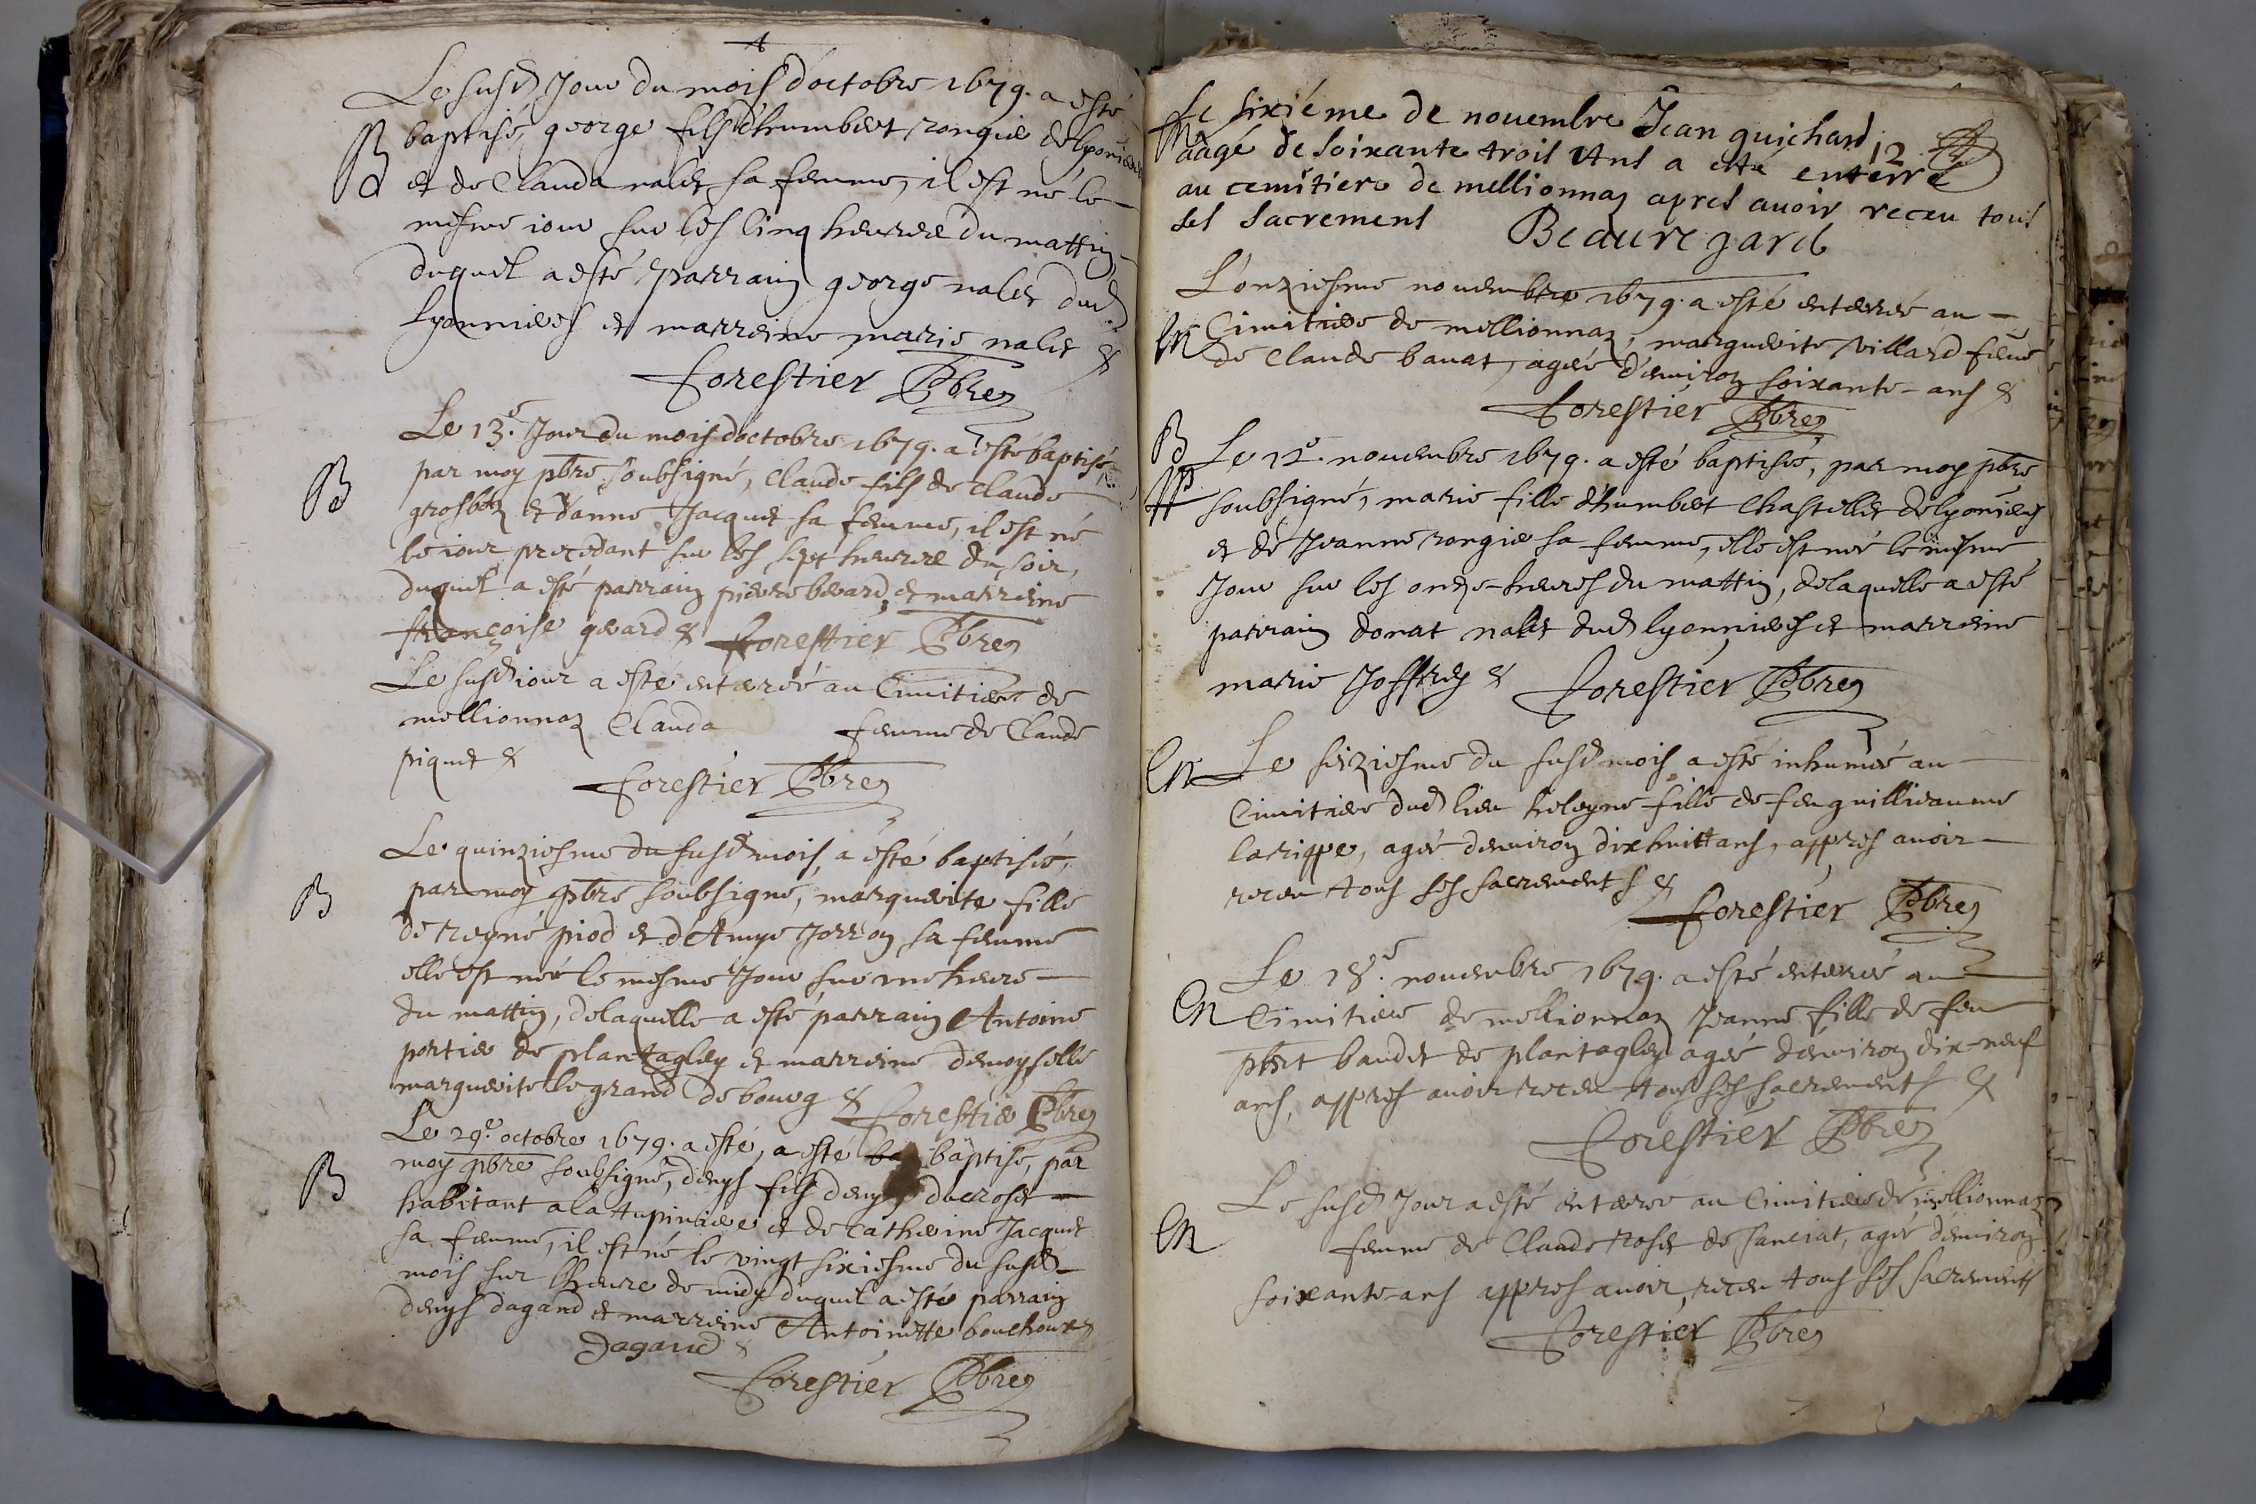 Le susd Jour du mois d'octobre 1679. a esté
B baptisé, george fils d'humbert rongier de lyonnier
et de Clauda nalet sa femme, il est né le
mesme iour sur les cinq heurres du mattin
duquel a esté parrain george nalet dud
lyonnieres et marreine marie nalet &
Forestier Pbre
Le 13.e Jour du mois d'octobre 1679. a esté baptisé
B par moy pbre soubsigné, Claude fils de Claude
et d'anne Jacquet sa femme, il est né
le iour precedant sur les sept heurre du soir,
duquel a esté parrain pierre berard, et marreine
françoise gerard & Forestier Pbre
Le susd iour a esté enterré au Cimitiere de
mellionnaz Clauda femme de Claude
piquet &
Forestier Pbre
Le quinziesme du susd mois, a esté baptisée,
B par moy pbre soubsigné, marguerite fille
de René piod et d'Amye Jorron sa femme
elle est née le mesme Jour sur une heure
du mattin, de laquelle a esté parrain Antoine
portier de plantagley et marreine demoyselle
marguerite le grand de bourg &
Forestier Pbre
Le 29.e octobre 1679. a esté, a esté baptisé, par
B moy pbre soubsigné, denys fils denys ducroset
habitant a la tupiniere et de Catherine Jacquet
sa femme, il est né le vingt sixiesme du susd
mois sur l'heure de midy duquel a esté parrain
denys dagand et marreine Antoinette bouchoux
Dagand &
Forestier Pbre
12
Le sixiéme de nouembre Jean guichard
aagé de soixante trois Ans a esté enterré
au cemitiere de mellionnaz apres auoir receu tous
ses sacrements Beauregard
L'onziesme nouembre 1679. a esté enterrée au
En Cimitiere de mellionnaz, marguerite villard feme
de Claude bauat, agée d'enuiron soixante ans &
Forestier Pbre
B Le 12.e nouembre 1679. a esté baptisée, par moy pbre
soubsigné, marie fille d'humbert Chastellet de lyonieres
et de Jeanne rongier sa femme, elle est née le mesme
Jour sur les onze heures du mattin, de laquelle a esté
parrain donat nalet dud lyonnieres et marreine
marie Joffrey & Forestier Pbre
En Le seiziesme du susd mois a esté inhumée au
Cimitiere dud lieu heleyne fille de feu guillieaume
larippe, agée d'enuiron dixhuitt ans, appres auoir
receu tous ses sacrements &
Forestier Pbre
Le 18.e nouembre 1679. a esté enterrée au
En Cimitiere de mellionnaz Jeanne fille de feu
baudet de plantagley agée d'enuiron dix-neuf
ans, appres auoir receu tous ses sacrements &
Forestier Pbre
Le susd Jour a esté enterrée au Cimitiere de mellionnaz
En femme de Claude roset de sanciat, agée d'enuiron
soixante ans appres auoir receu tous ses sacrements
Forestier Pbre